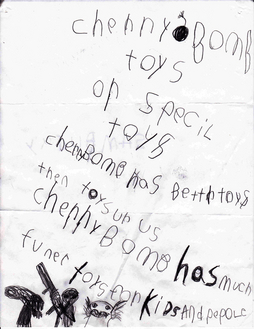 chenny BOMB
toys
on specil
toys
chenyBOMB has Bettn toys
then toys un us
chenny BOMB has much
funer toys fon kids and pepole